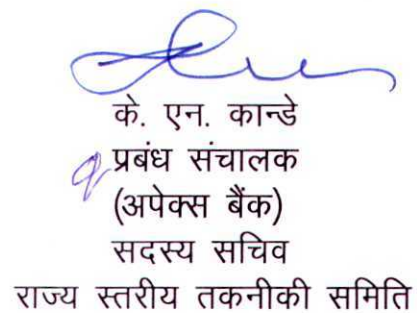 के. एन. कान्डे
प्रबंध संचालक
(अपेक्स बैंक)
सदस्य सचिव
राज्य स्तरीय तकनीकी समिति